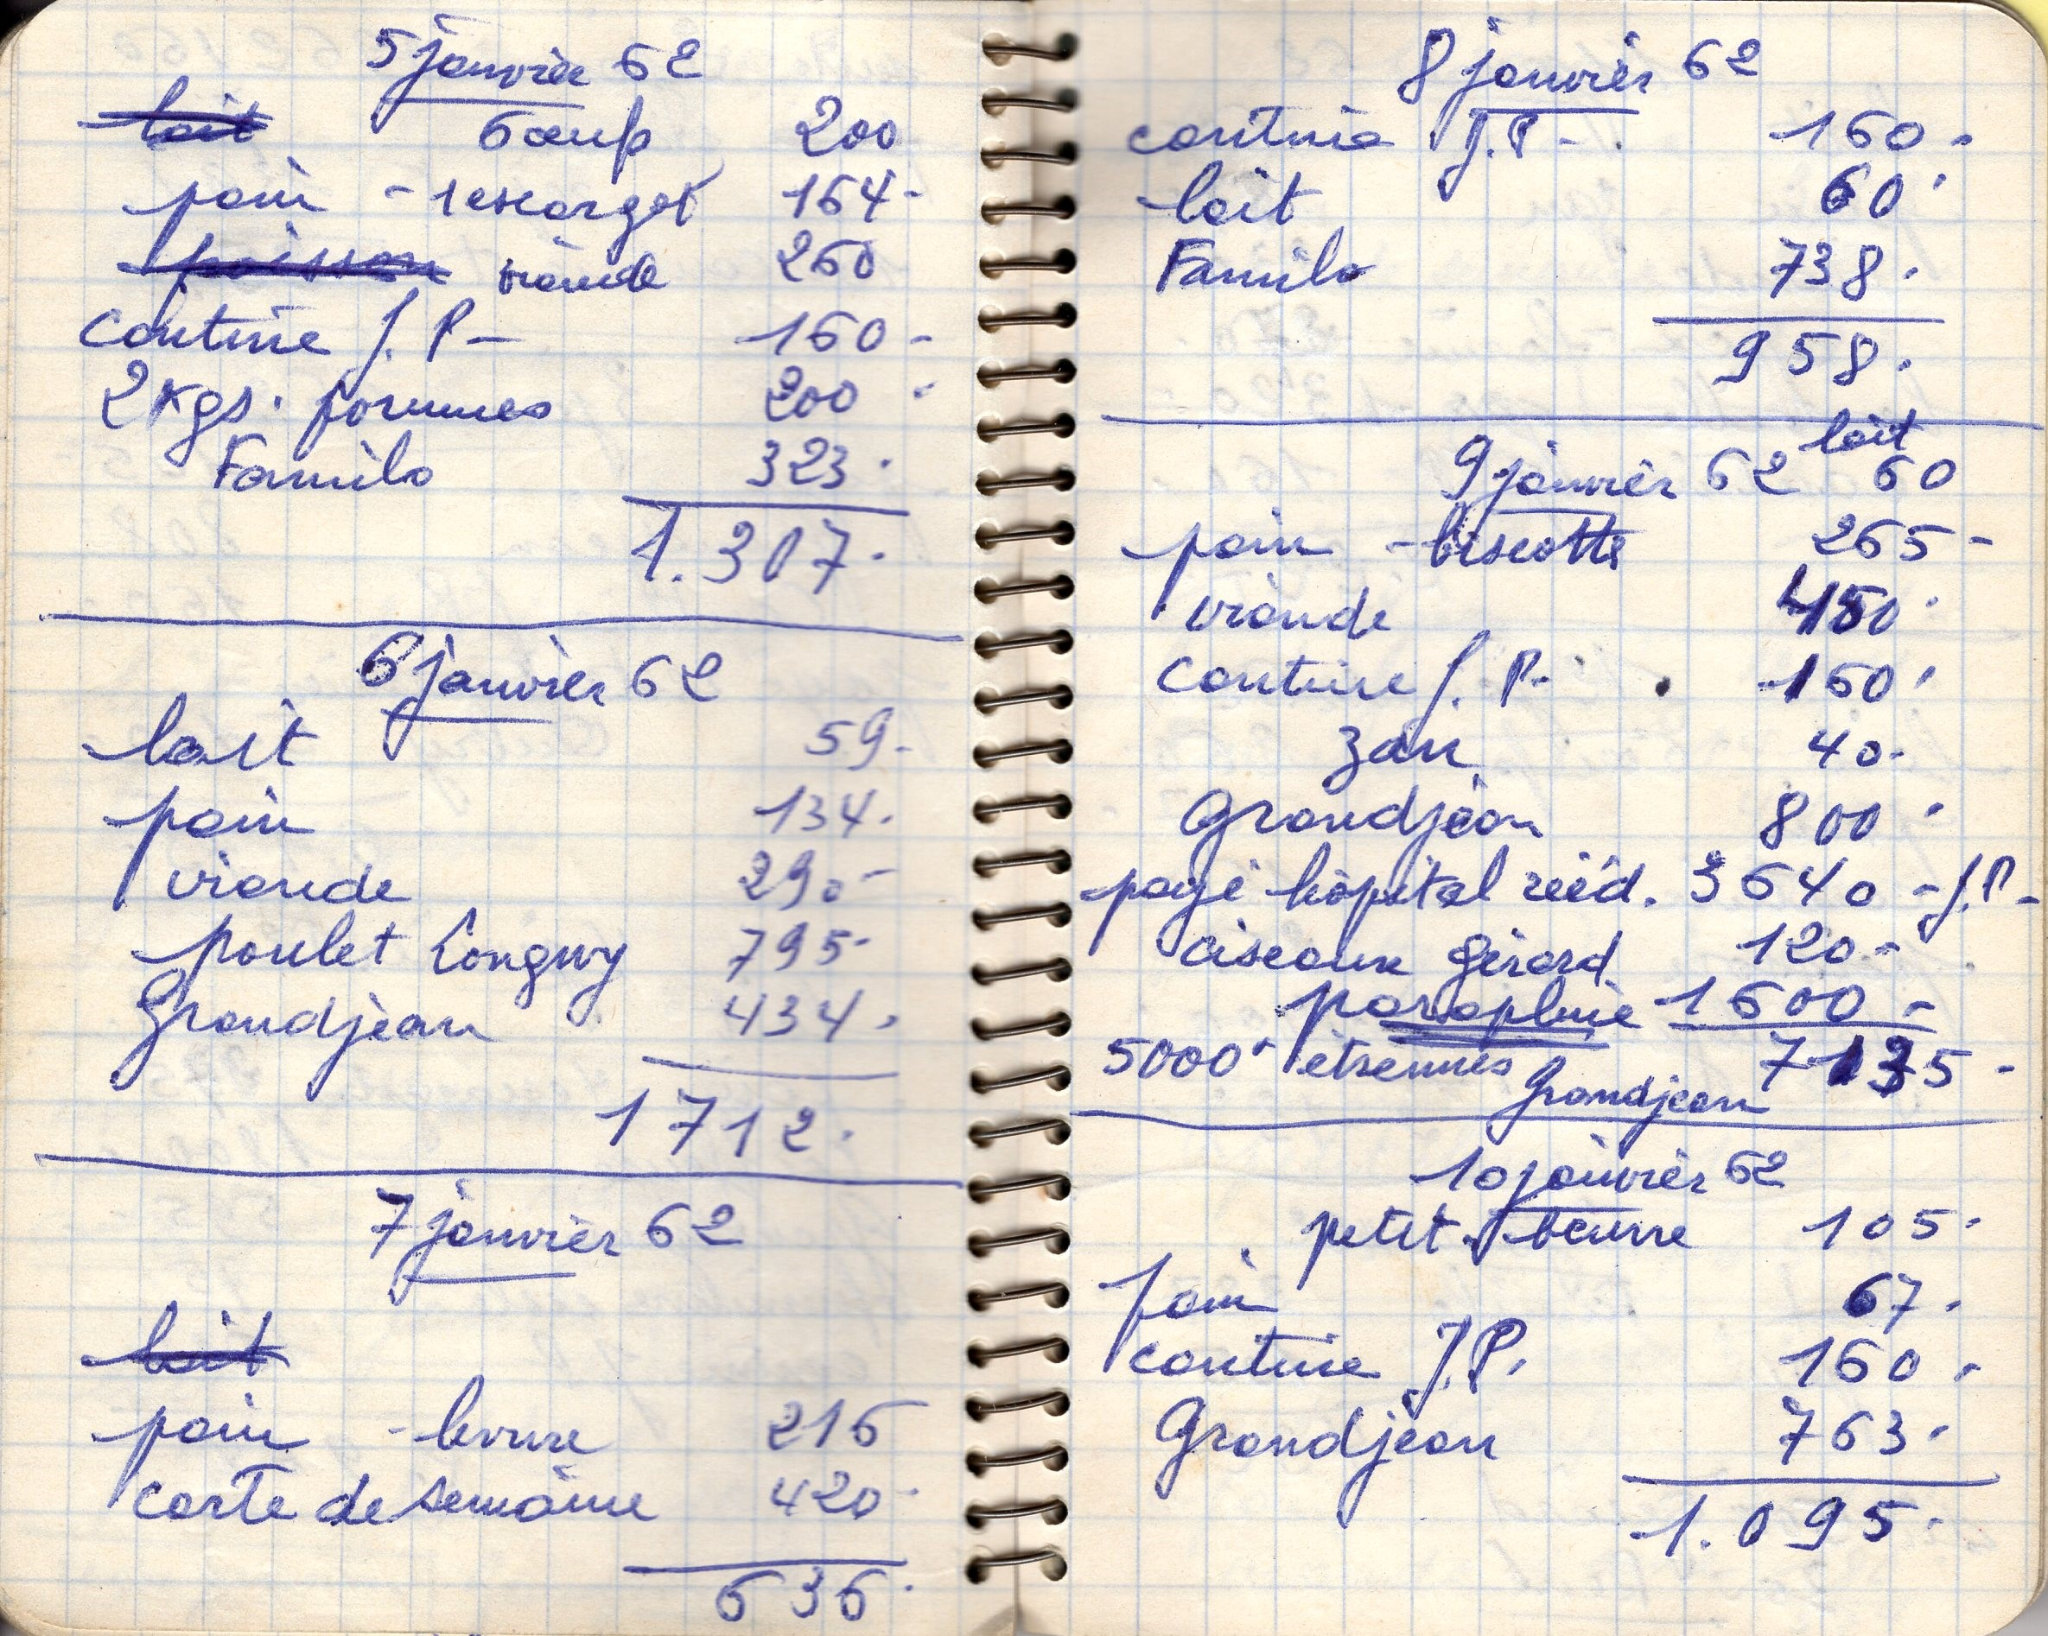 5 janvier 62
lait 6 œufs 200
pain - 1 escargot 164-
poisson viande 260
Cantine J.P- 160-
2 Kgs. pommes 200
Familo 323.
1.307.
6 janvier 62
lait 59-
pain 134.
viande 290-
poulet Longwy 795-
Grandjean 434.
1712.
7 janvier 62
lait
pain - levure 216
carte de semaine 420-
636.
8 janvier 62
cantine J.P- 160-
lait 60.
Familo 738.
958.
lait
9 janvier 62 60
pain - biscotte 265-
viande 450.
Cantine J.P- 160.
Zan 40-
Grandjean 800.
payé hôpital rééd. 3640 - J.P-
ciseaux Gérard 120-
parapluie 1600-
5000. étrennes 7135-
Grandjean
10 janvier 62
petit beurre 105.
pain 67.
cantine J.P. 160.
Grandjean 763.
1.095.